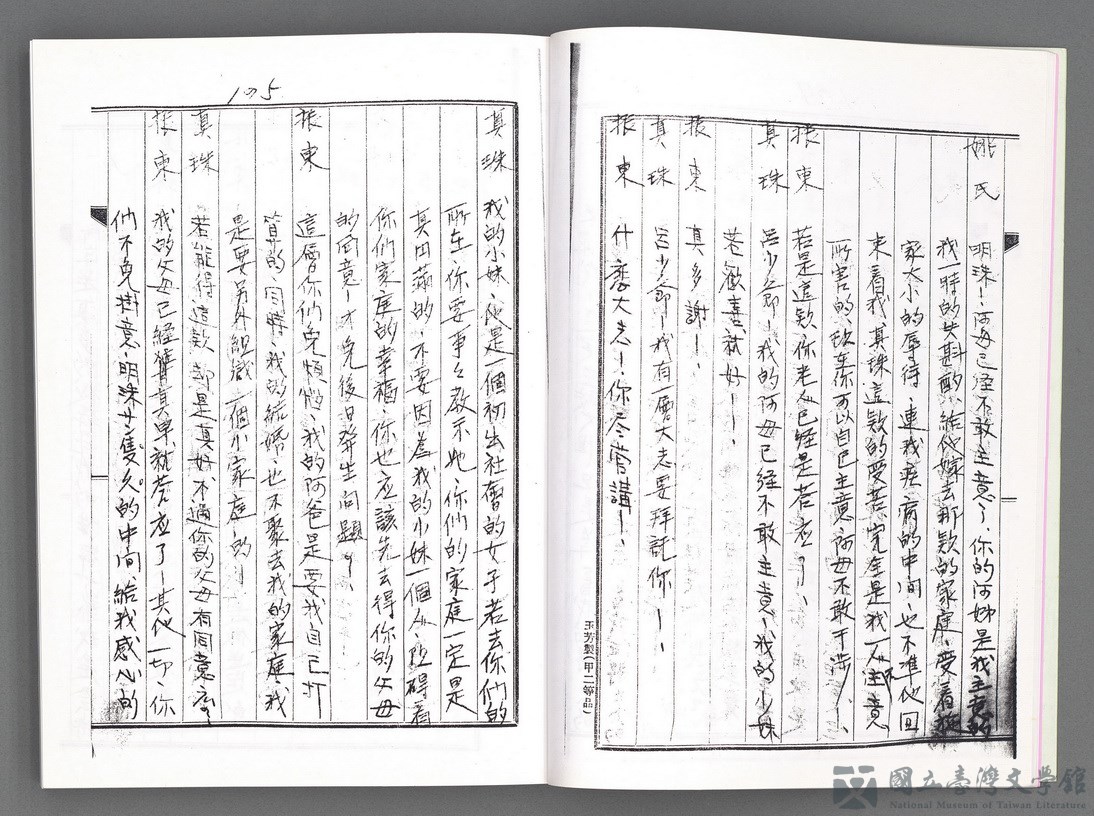 姚氏 明珠！阿母已經不敢主意了、你的阿姊是我主意的
我一時的失斟酌、給伊嫁去那款的家庭、受着極
家大小的辱待、連我疾病的中間、也不準他回
來看我、真珠這款的受苦、完全是我一人主意
所害的、現在你可以自己主意、阿母不敢干涉！、
振東 若是這款、你老人已經是答應了、
真珠 呂少爺！我的阿母已經不敢主意！我的小妹
若歡喜就好！！、
振東 真多謝！、
真珠 呂少爺！我有一層大志要拜託你！！、
振東 什麼大志！你尽管講！、
玉芳製(甲二等品)
105
真珠 我的小妹、是一個初出社會的女子若去你們的
所在、你要事々教示她、你們的家庭一定是
真田的、不要因為我的小妹一個人阻碍着
你們家庭的幸福、你也應該先去得你的父母
的同意！才免後日發生問題、
振東 這層你們免煩惱、我的阿爸是要我自己打
算的、同時、我的結婚、也不聚去我的家庭、我
是要另外組織一個小家庭的！
真珠 若能得這款、却是真好、不過你的父母有同意麼、
振東 我的父母已經算真早就答應了！其他一切、你
們不免掛意、明珠久的中間、給我感心的
國立臺灣文學館
National Museum of Taiwan Literature